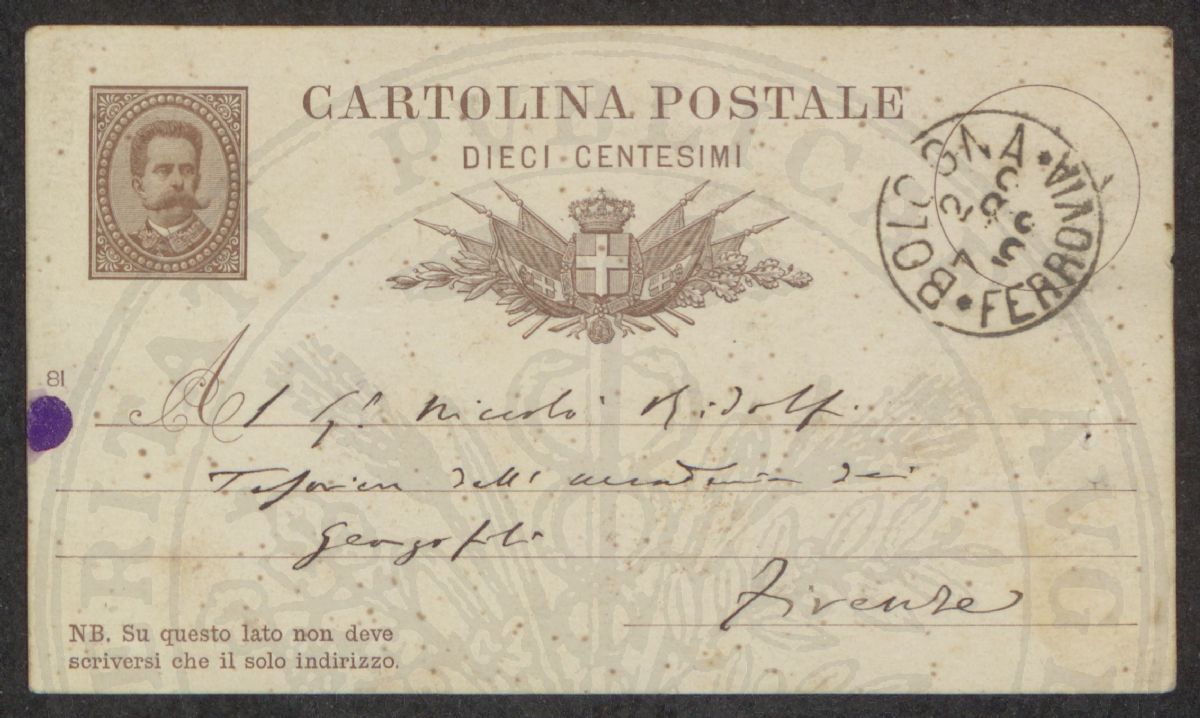 CARTOLINA POSTALE
DIECI CENTESIMI
BOLOGNA
FERROVIA
81
Al Sr Niccolò Ridolfi
Tesoriere dell' accademia dei
Georgofili
Firenze
NB. Su questo lato non deve
scriversi che il solo indirizzo.
PUBLICA